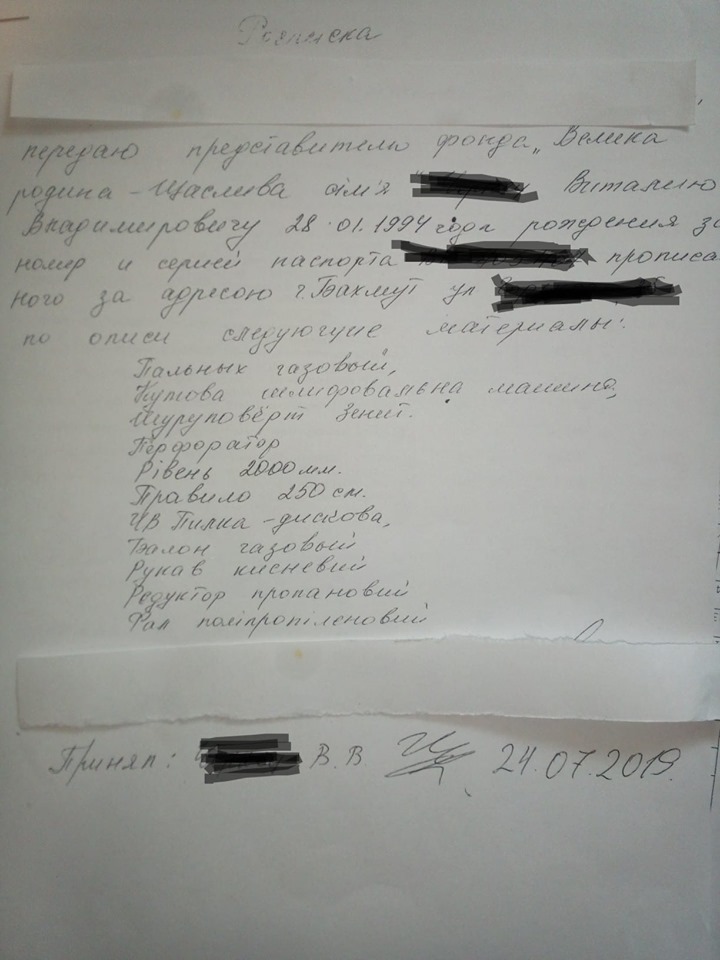 Расписка
передаю представителю фонда „Велика
родина - Щаслива сім'я Виталию
Владимировичу 28.01.1994 года рождения за
номер и серией паспорта прописа
ного за адресою г. Бахмут ул
по описи следующие материалы:
Пальных газовый,
Кутова шлифовальна машина,
Шуруповёрт Зеніт.
Перфоратор
Рівень 2000 мм.
Правило 250 см.
Пилка - дискова,
Балон газовый
Рукав кисневий
Редуктор пропановий
Фал поліпропіленовий
Принял: В.В. 24.07.2019.